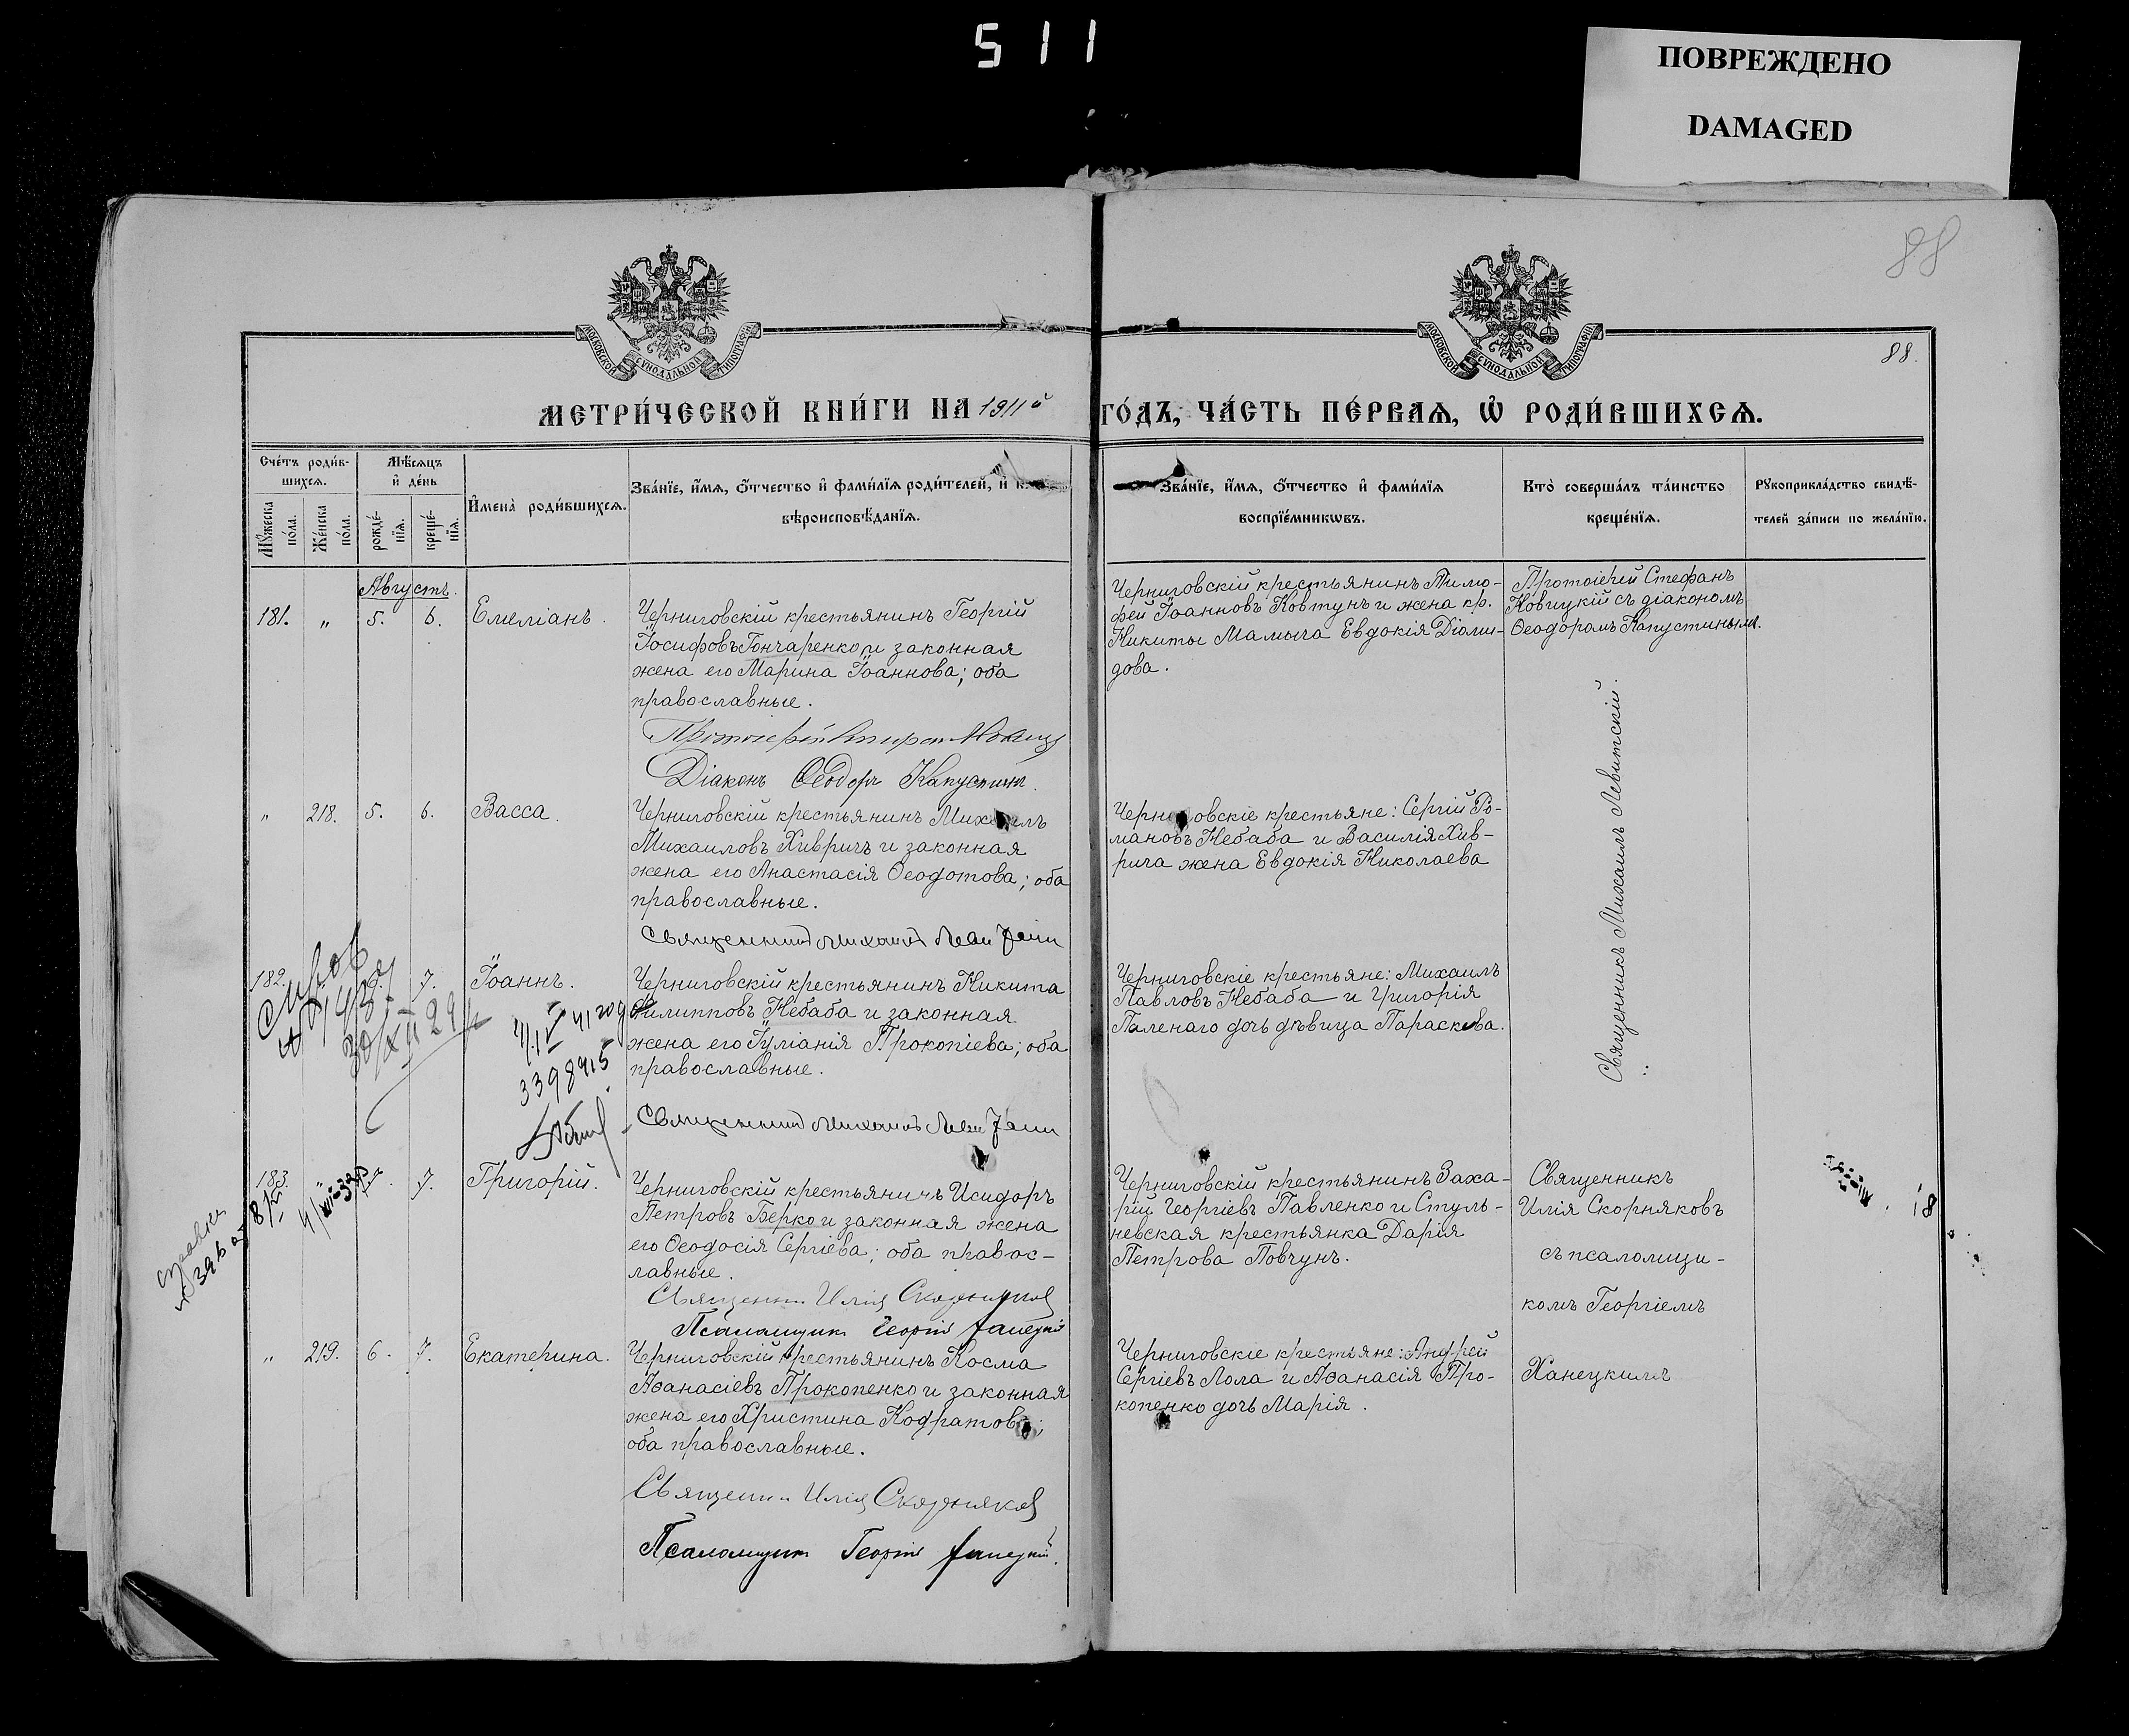 511
ПОВРЕЖДЕНО
DAMAGED
88
МОСКОВСКОЙ СѴНОДАЛЬНОЙ ТИПОГРАФІИ
МОСКОВСКОЙ СѴНОДАЛЬНОЙ ТИПОГРАФІИ
88.
МЕТРИ́ЧЕСКОЙ КНИ́ГИ НА 1911й ГО́ДЪ, ЧА́СТЬ ПЕ́РВАѦ, Ѽ РОДИ́ВШИХСѦ.
Сче́тъ роди́в-
шихсѧ.
Мꙋ́жеска
по́ла.
Же́нска
по́ла.
Мѣ́сѧцъ
и҆ де́нь
рожде́-
нїѧ.
креще́-
нїѧ.
И҆мена̀ роди́вшихсѧ.
Зва́нїе, и҆́мѧ, ѻ҆́тчество и҆ фами́лїѧ роди́телей, и҆ к
вѣроисповѣ́данїѧ.
Зва́нїе, и҆́мѧ, ѻ҆́тчество и҆ фами́лїѧ
воспрїе́мникѡвъ.
Кто̀ соверша́лъ та́инство
креще́нїѧ.
Рꙋкоприкла́дство свидѣ́-
телей за́писи по жела́нїю.
Августъ.
181. " 5. 6. Емеліанъ.
Черниговскій крестьянинъ Георгій
Іосифовъ Гончаренко и законная
жена его Марина Іоаннова; оба
православные.
Діаконъ Ѳеодоръ Капустинъ.
Черниговскій крестьянинъ Тимо-
фей Іоанновъ Ковтунъ и жена кр.
Никиты Мамыча Евдокія Діоми-
дова.
Протоіерей Стефанъ
Новицкій съ діакономъ
Ѳеодоромъ Капустинымъ.
" 218. 5. 6. Васса.
Черниговскій крестьянинъ Михаилъ
Михаиловъ Хивричъ и законная
жена его Анастасія Ѳеодотова; оба
православные.
Священникъ Михаилъ
Черниговскіе крестьяне: Сергій Ро-
мановъ Небаба и Василія Хив-
рича жена Евдокія Николаева
Священникъ Михаилъ Левитскій.
182. 7. Іоаннъ.
Черниговскій крестьянинъ Никита
Филипповъ Небаба и законная
жена его Іуліанія Прокопіева; оба
православные.
Священникъ Михаилъ
Черниговскіе крестьяне: Михаилъ
Павловъ Небаба и Григорія
Паленаго дочь дѣвица Параскева.
3398915
183. " 7. Григорій.
Черниговскій крестьянинъ Исидоръ
Петровъ Берко и законная жена
его Ѳеодосія Сергіева; оба правос-
лавные.
Священникъ Илія Скорняковъ
Псаломщикъ Георгій Ханецкій
Черниговскій крестьянинъ Заха-
рій Георгіевъ Павленко и Стуль-
невская крестьянка Дарія
Петрова Повчунъ.
Священникъ
Илія Скорняковъ
съ псаломщи-
комъ Георгіемъ
Ханецкимъ
" 219. 6. 7. Екатерина.
Черниговскій крестьянинъ Косма
Аѳанасіевъ Прокопенко и законная
жена его Христина Кодратова;
оба православные.
Священникъ Илія Скорняковъ
Псаломщикъ Георгій Ханецкій.
Черниговскіе крестьяне: Андрей
Сергіевъ Лола и Аѳанасія Про-
копенко дочь Марія.